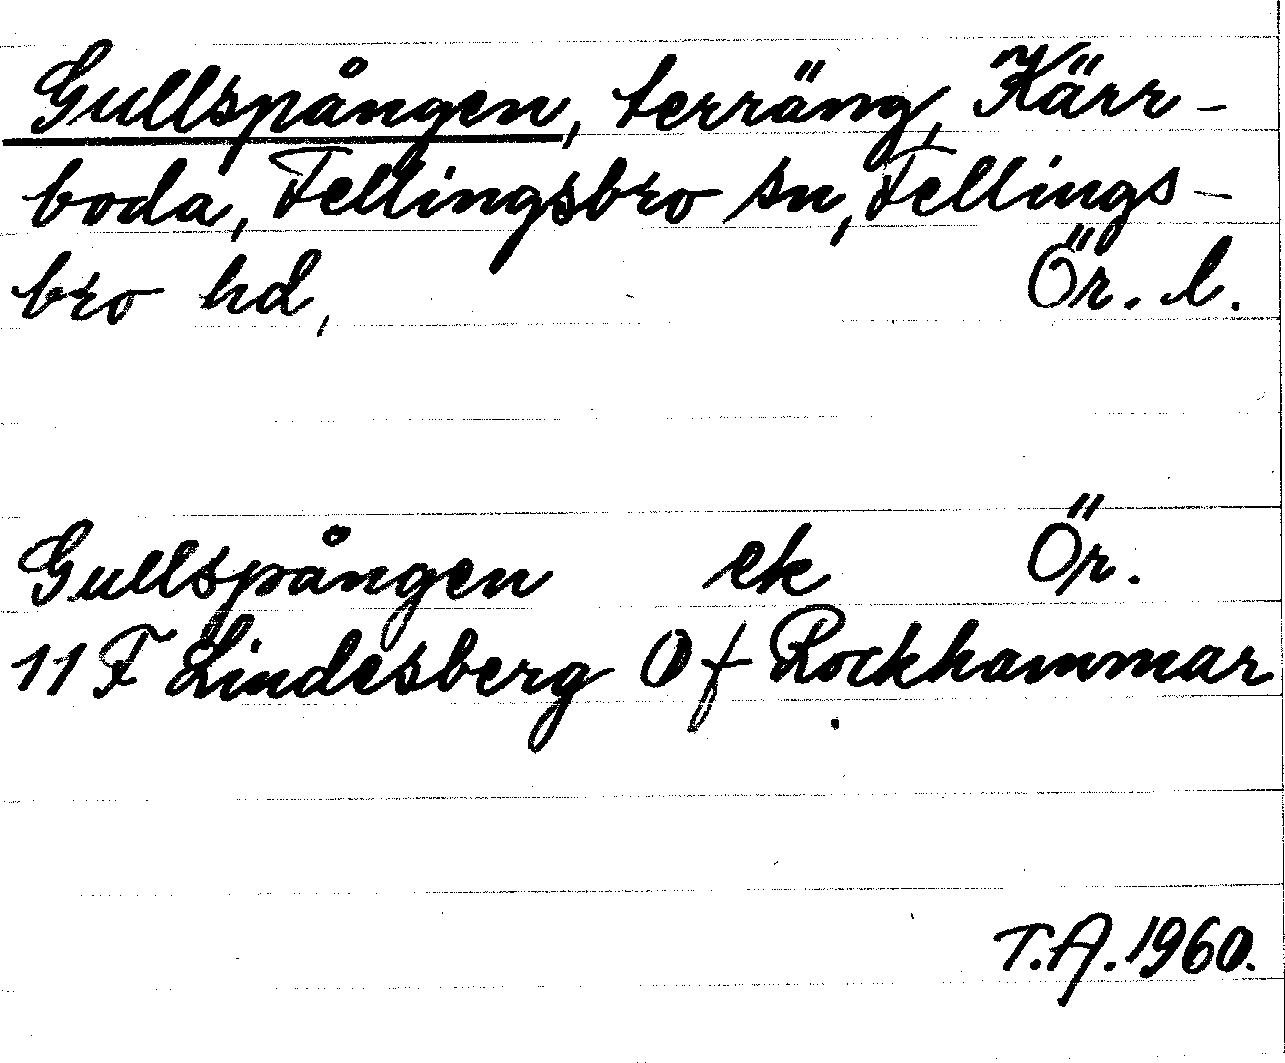 Gullspången, terräng, Kärr-
boda, Fellingsbro sn, Fellings-
bro hd, Ör. l.
Gullspången ek Ör.
11 F Lindesberg Of Rockhammar
T.A. 1960.